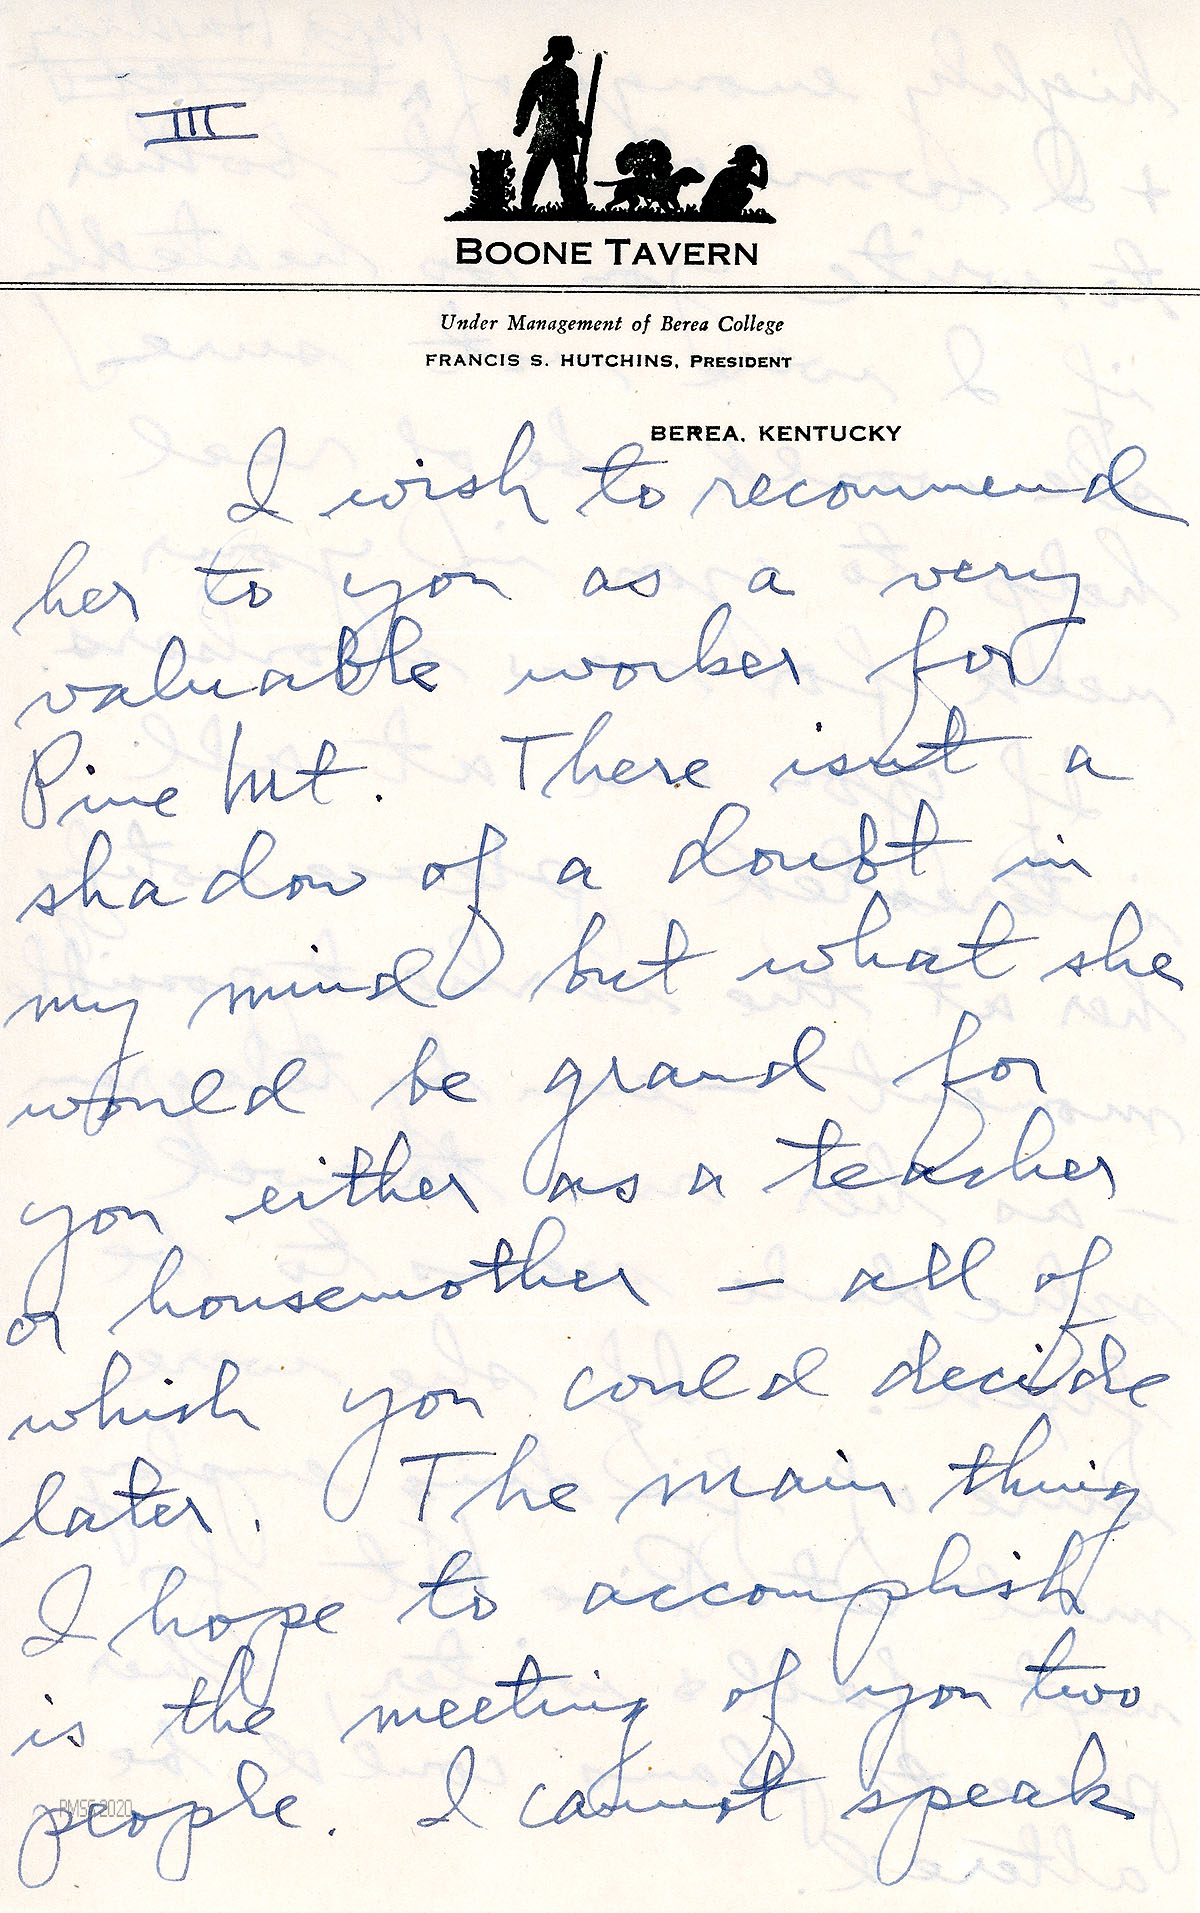 III
BOONE TAVERN
Under Management of Berea College
FRANCIS S. HUTCHINS, PRESIDENT
BEREA, KENTUCKY
I wish to recommend
her to you as a very
valuable worker for
Pine Mt. There isn't a
shadow of a doubt in
my mind but what she
would be grand for
you either as a teacher
or housemother — all of
which you could decide
later. The main thing
I hope to accomplish
is the meeting of you two
people. I cannot speak
PMSS 2020